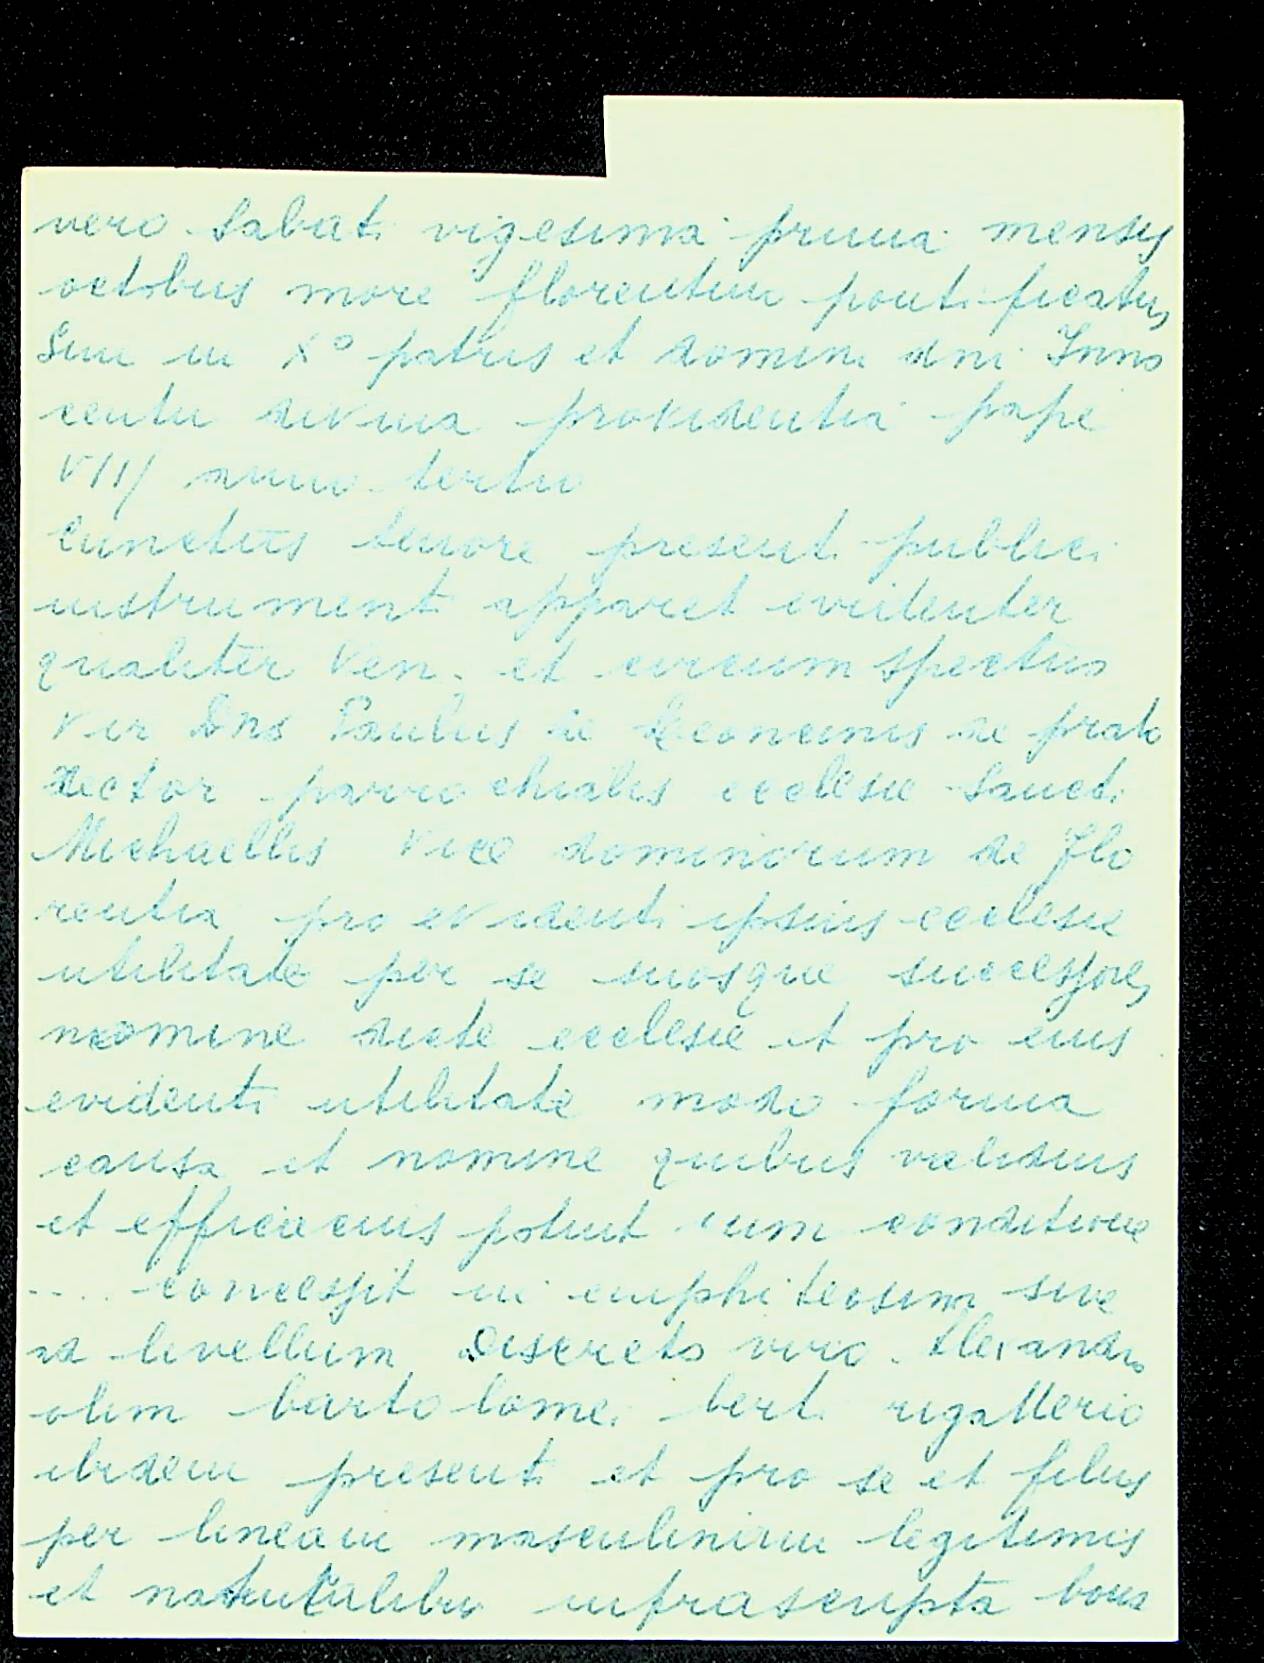 vero Sabati vigesima prima mensis
octobris more florentin pontificatus
Smi in Xº patris et domini dni Inno
centii divina providentia pape
VIII anno tertio
Cunctis tenore presenti publici
instrumenti apparet evidenter
qualiter Ven. et circumspectus
Vir Dns Paulus de Leoncinis de prato
Rector parrochialis ecclesie Sancti
Michaellis Vice dominorum de Flo
rentia pro evidenti ipsius ecclesie
utilitate per se suosque successores
nomine dicte ecclesie et pro eius
evidenti utilitate modo forma
causa et nomine quibus validius
et efficacius potuit cum conditione
.... concessit in emphiteosim sive
ad livellum Discreto viro Alexandro
olim bartolomei berti rigatterio
ibidem presenti et pro se et filiis
per lineam masculinam legitimis
et naturalibus infrascripta bona